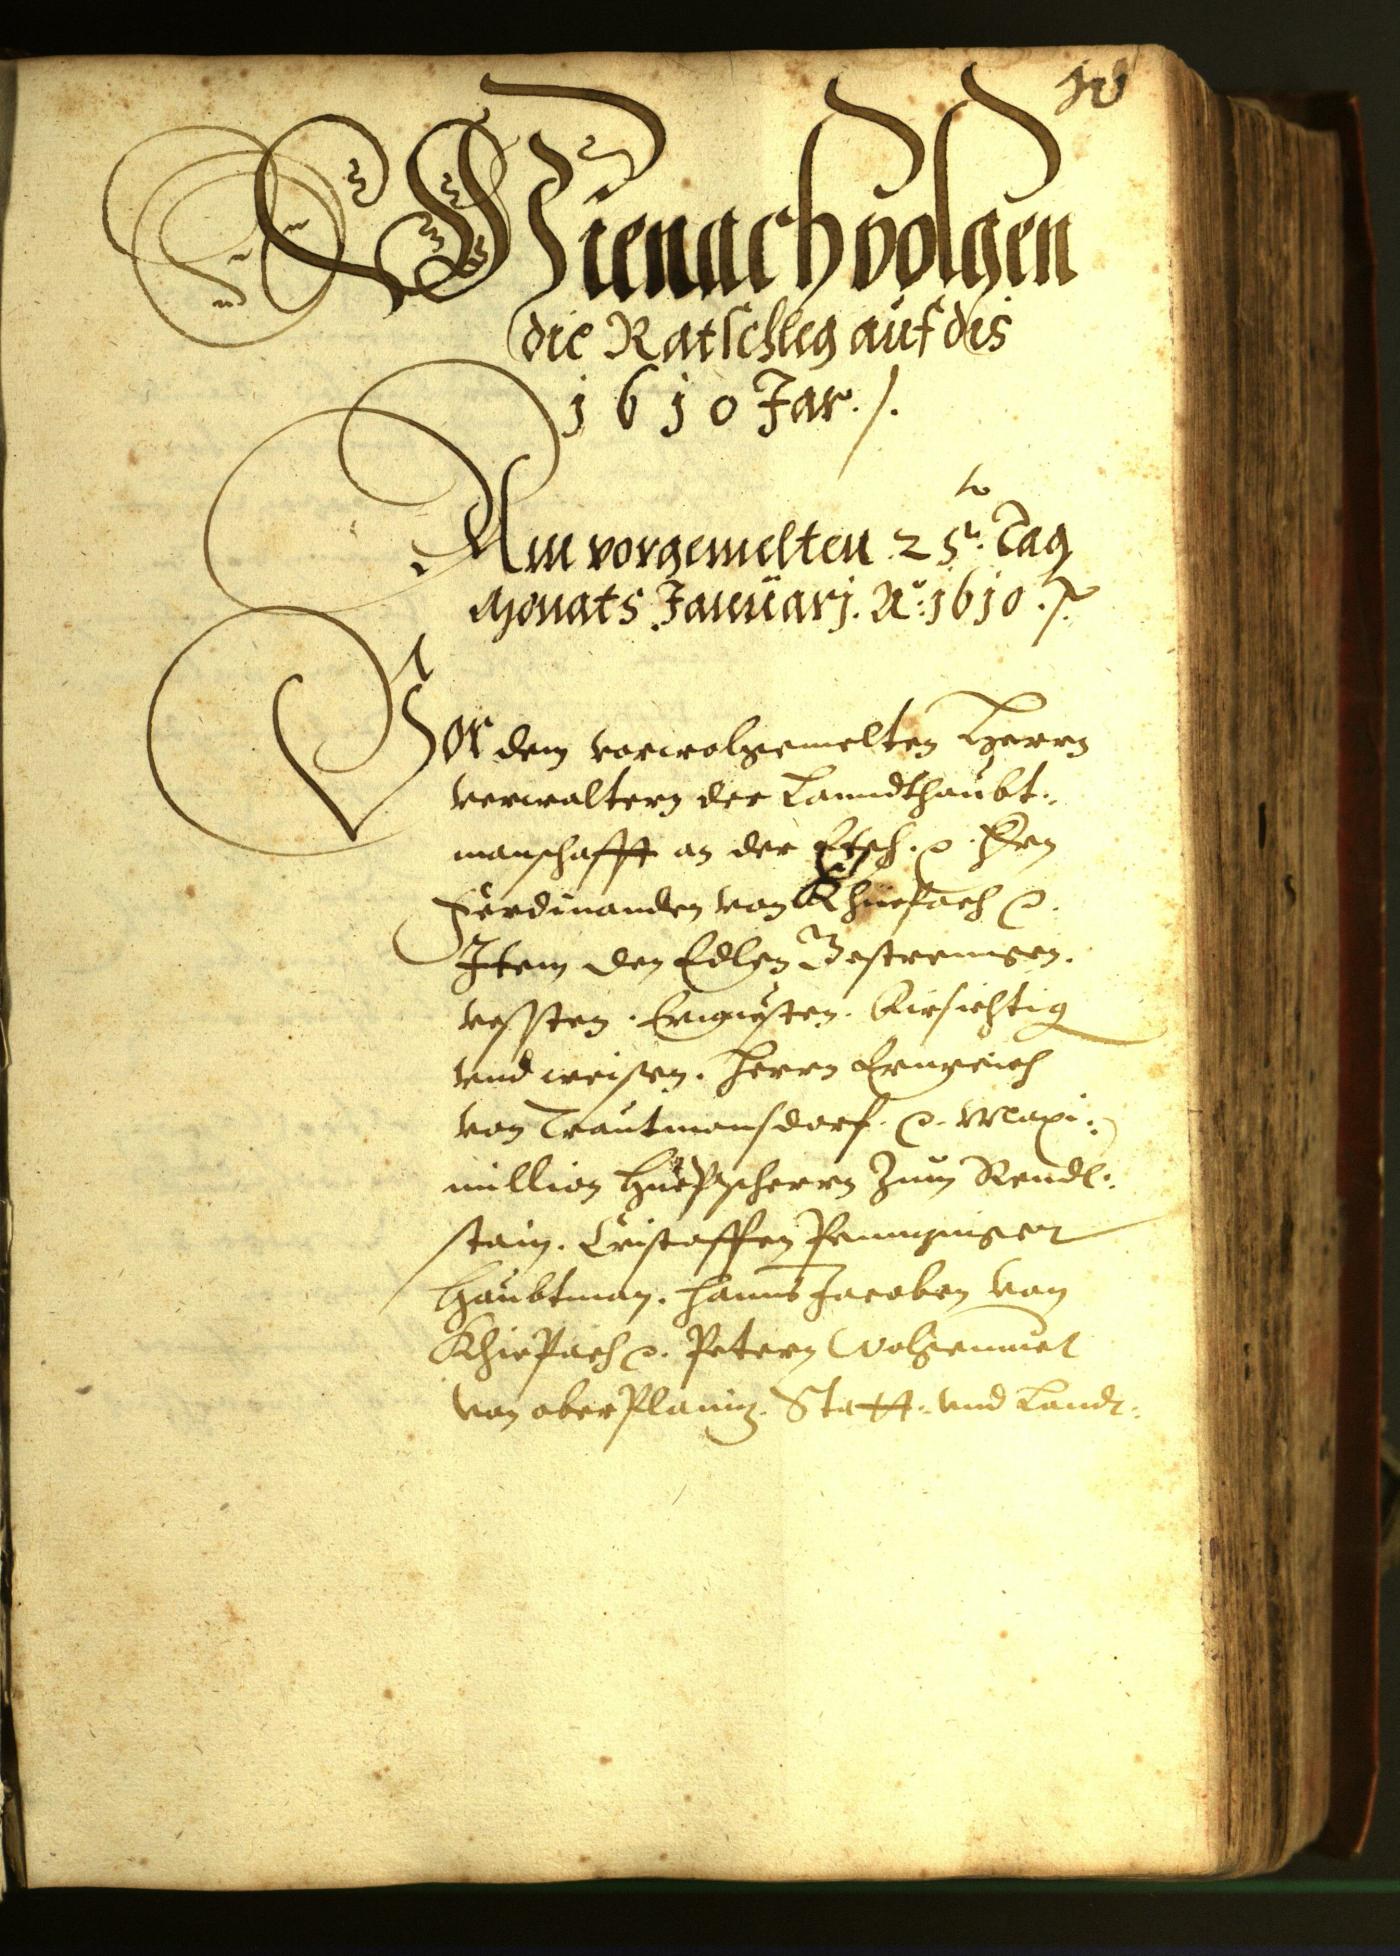 Hienach volgen
die Ratschleg auf dis
1610 Jar. /.
Am vorgemelten 25. Tag
Monats Januarj. Ao: 1610. /.
Vor dem vorwolgemelten Herrn
verwaltern der Lanndthaubt:
manschafft an der Etsch. Hrn
Ferdinanden von Khüepach
Item den Edlen Gestrenngen.
vessten. Fürsichtig
vnd weisen. Herrn
von Trautmansdorf. Maxi:
million Hüeptscherrn Zum Rendl:
stain. Cristoffen
Haubtman. Hanns Jacoben von
Khiepach. Petern Wolgemuet
von oberPlaniz. Statt: vnd Landt: